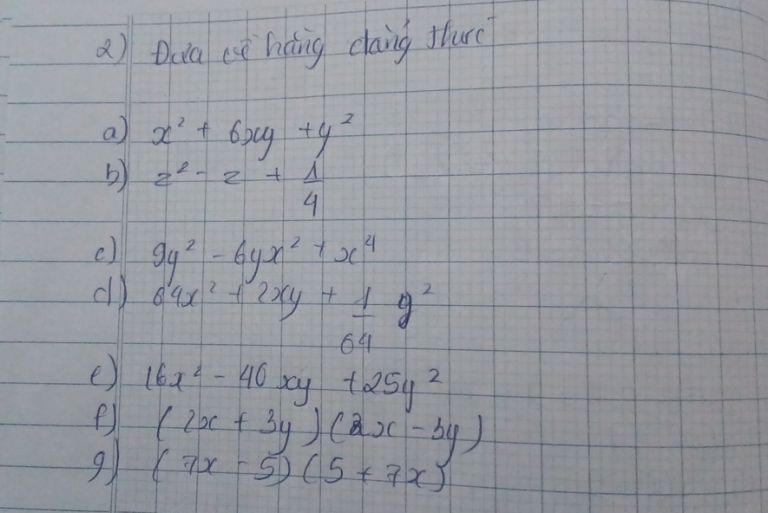 2) Đưa về hằng đẳng thức
a) x² + 6xy + y²
b) z² - z + 1/4
c) 9y² - 6yx² + x⁴
d) 64x² + 2xy + 1/64 y²
e) 16x² - 40xy + 25y²
f) (2x + 3y)(2x - 3y)
g) (7x - 5)(5 + 7x)